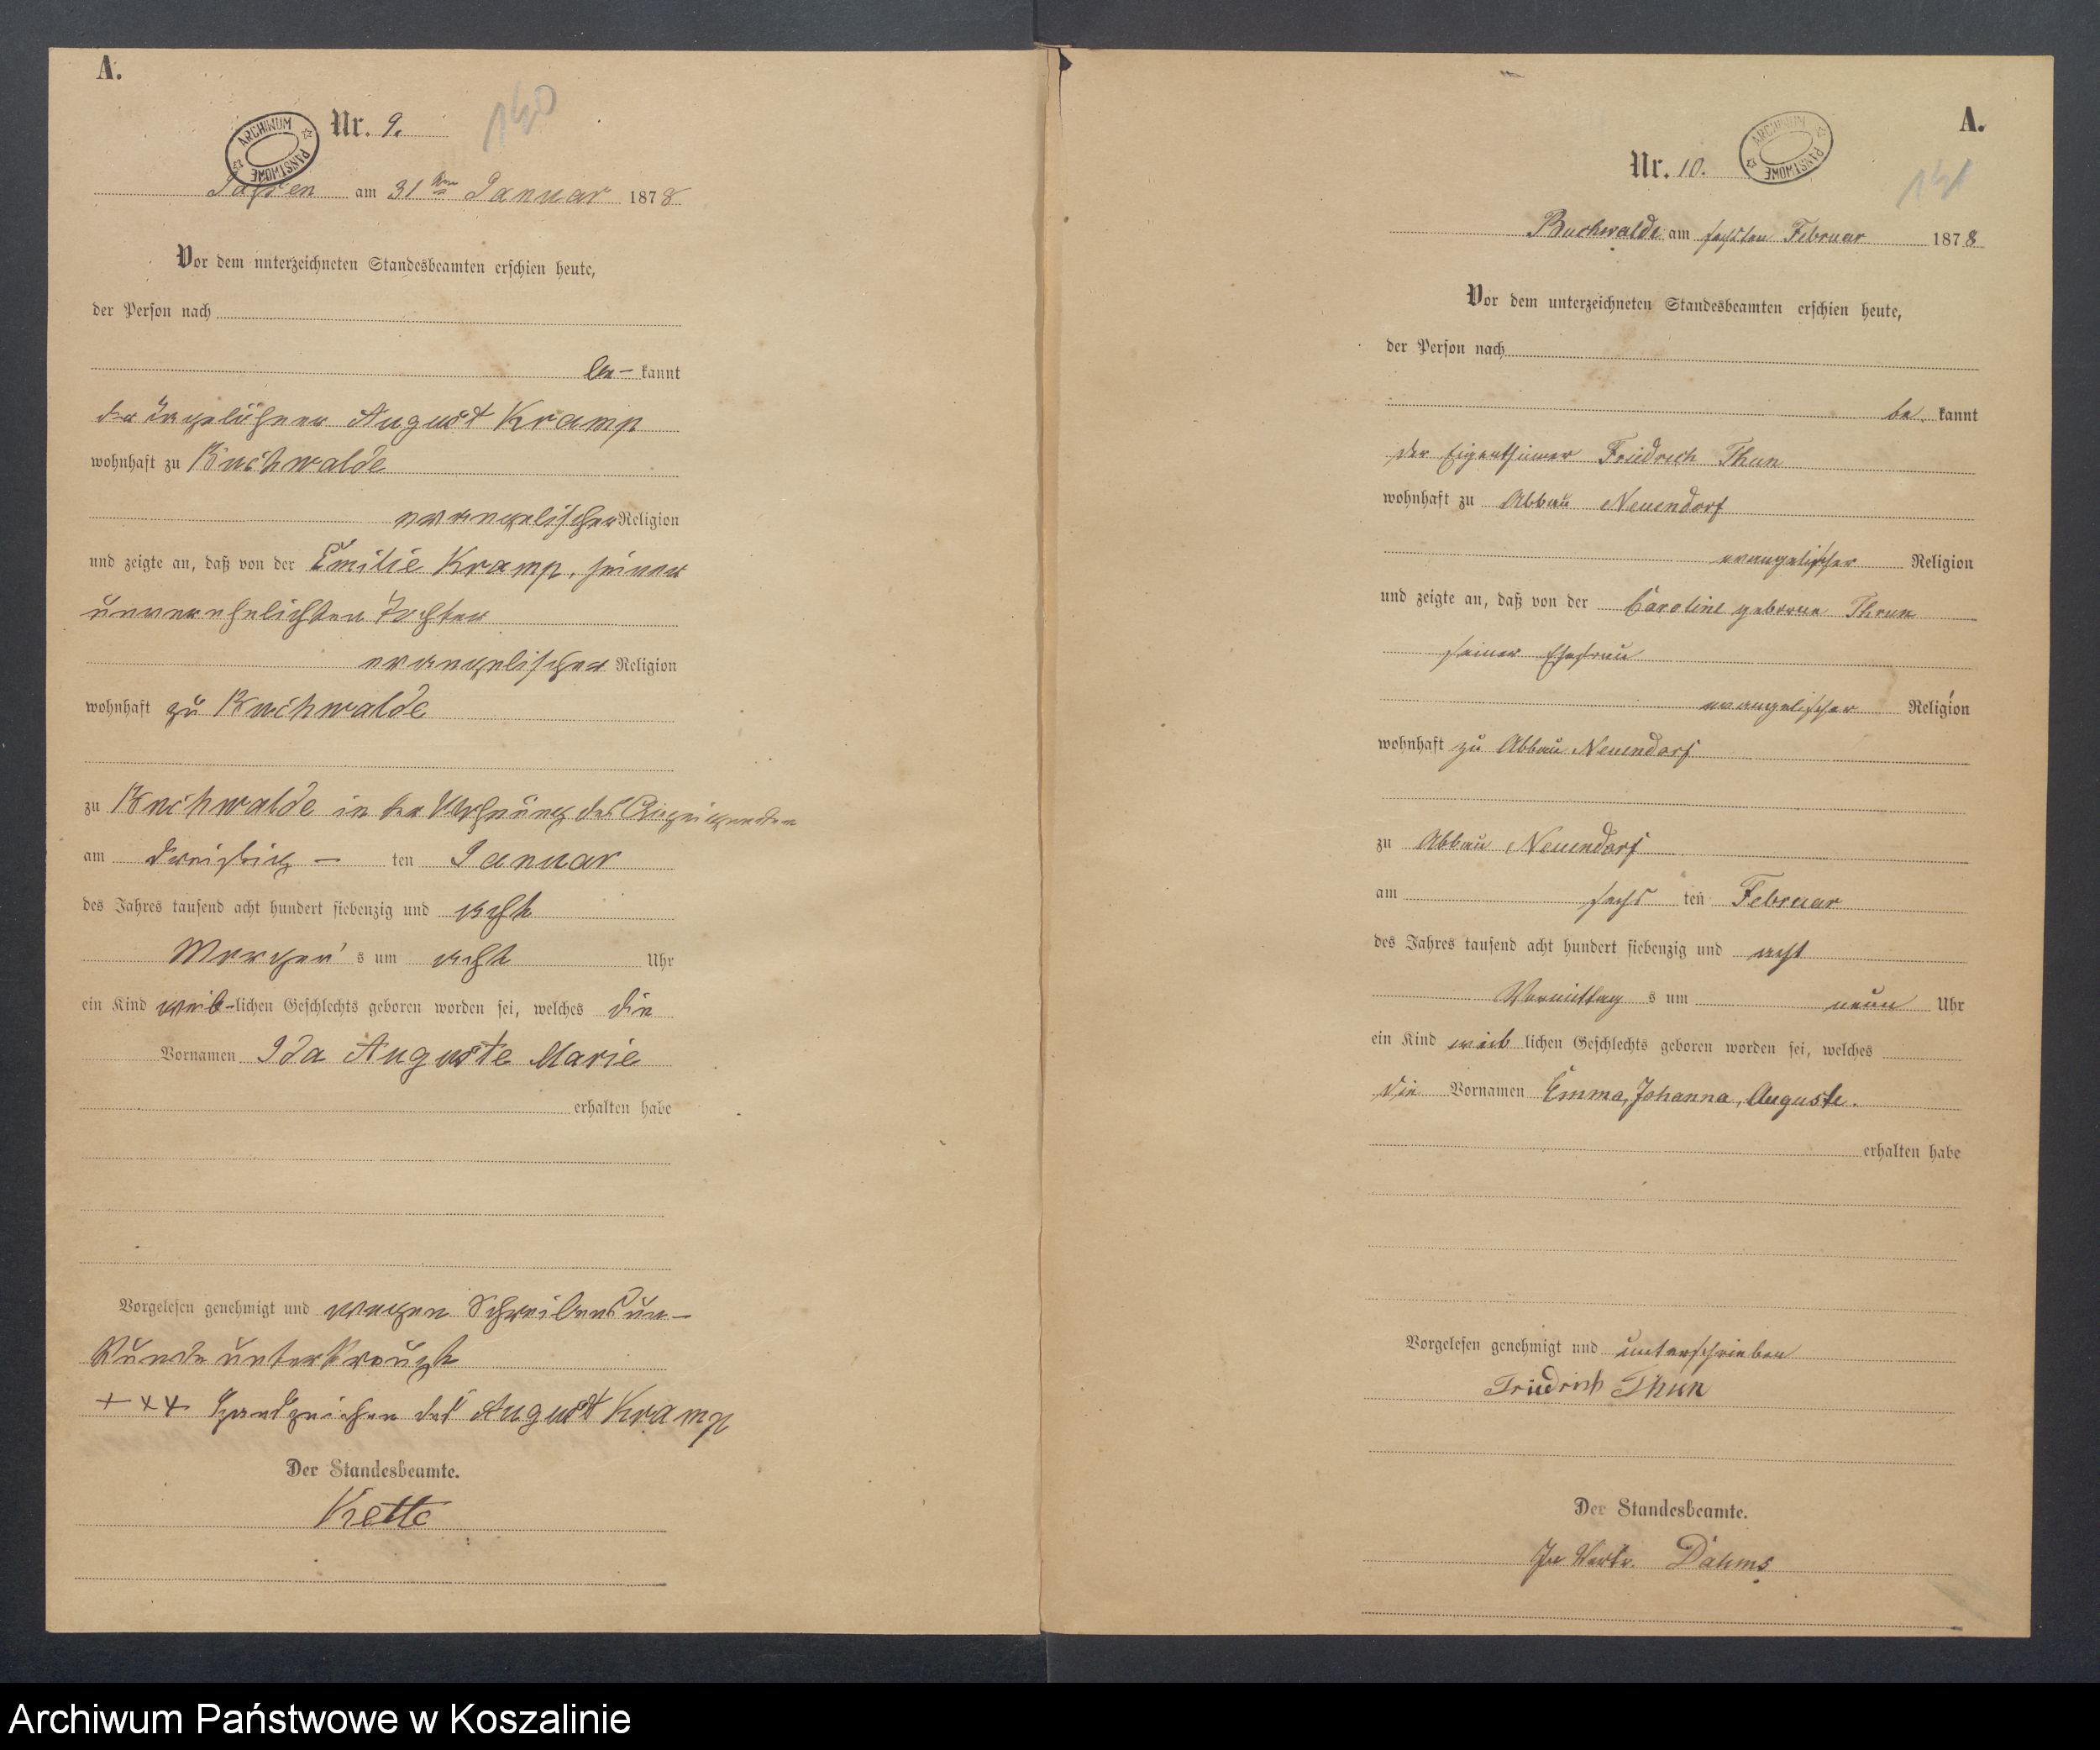 A.
ARCHIWUM PAŃSTWOWE
Nr. 9.
140
am 31ten Januar 1878
Vor dem unterzeichneten Standesbeamten erschien heute,
der Person nach
be- kannt
der Tagelöhner August Kramp
wohnhaft zu Buchwalde
evangelischer Religion
und zeigte an, daß von der Emilie Kramp, seiner
unverehelichten Tochter
evangelischer Religion
wohnhaft zu Buchwalde
zu Buchwalde in der Wohnung des Anzeigenden
am dreißig - ten Januar
des Jahres tausend acht hundert siebenzig und acht
Morgen's um acht Uhr
ein Kind weib-lichen Geschlechts geboren worden sei, welches die
Vornamen Ida Auguste Marie
erhalten habe
Vorgelesen genehmigt und wegen Schreibens un-
kunde unterkreuzt
+++ Handzeichen des August Kramp
Der Standesbeamte.
Kette
A.
ARCHIWUM PAŃSTWOWE
Nr. 10.
141
Buchwalde am sechsten Februar 1878
Vor dem unterzeichneten Standesbeamten erschien heute,
der Person nach
be kannt
der Eigenthümer Friedrich Thun
wohnhaft zu Abbau Neuendorf
evangelischer Religion
und zeigte an, daß von der Caroline geborne Thrun
seiner Ehefrau
evangelischer Religion
wohnhaft zu Abbau Neuendorf
zu Abbau Neuendorf
am sechs ten Februar
des Jahres tausend acht hundert siebenzig und acht
Vormittag s um neun Uhr
ein Kind weib lichen Geschlechts geboren worden sei, welches
die Vornamen Emma, Johanna, Auguste.
erhalten habe
Vorgelesen genehmigt und unterschrieben
Friedrich Thun
Der Standesbeamte.
In Vertr. Dahms
Archiwum Państwowe w Koszalinie